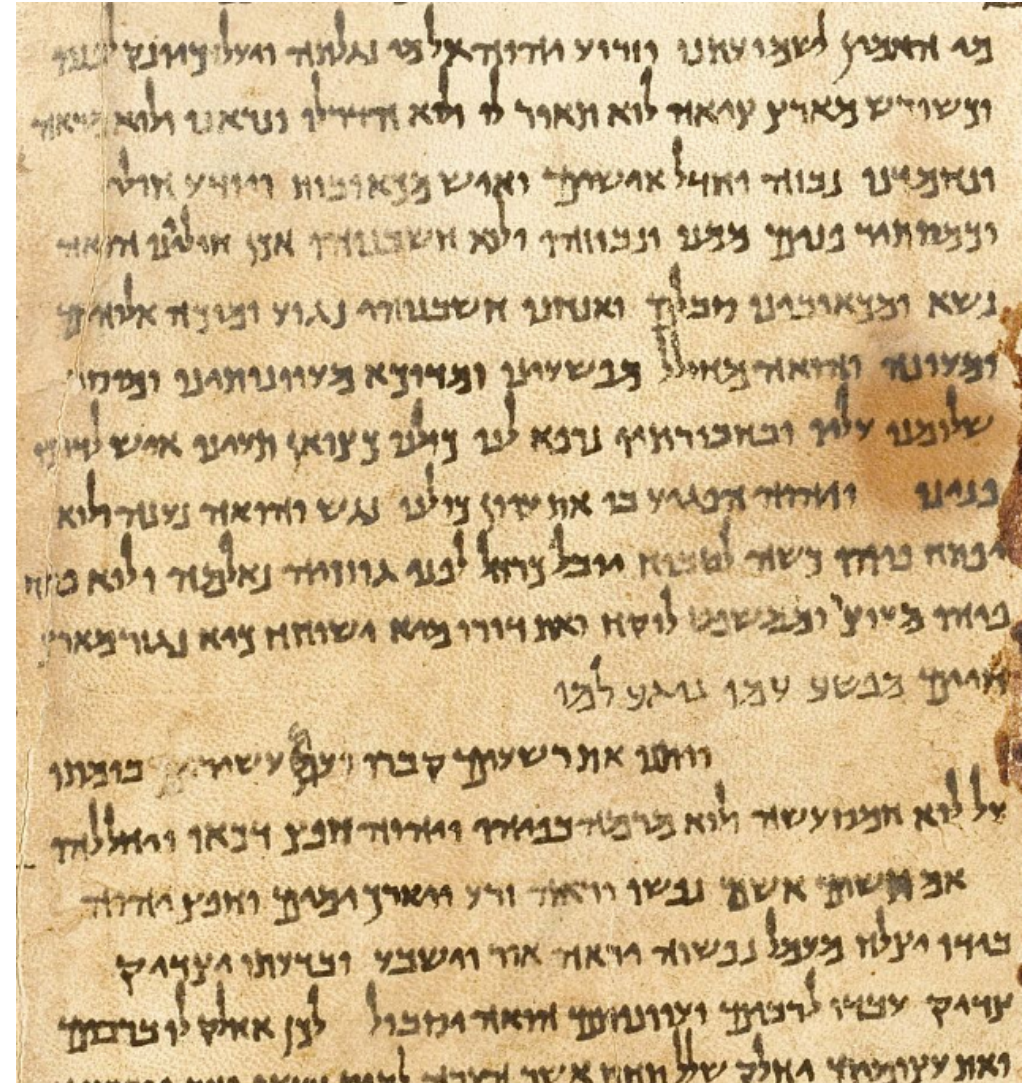 מי האמין לשמועתנו וזרוע יהוה אל מי נגלתה ויעל כיונק לפניו
וכשורש מארץ ציה לוא תאור לו ולוא הדר לו ונראנו ולוא מראה
ונחמדנו נבזה וחדל אישים ואיש מכאובות ויודע חולי
וכמסתיר פנים ממנו ונבוזהו ולוא חשבנוהו אכן חוליינו הואה
נשא ומכאובינו סבלם ואנחנו חשבנוהו נגוע ומוכה אלוהים
ומעונה והואה מחולל מפשעינו ומדוכא מעוונותינו ומוסר
שלומנו עליו ובחבורתיו נרפא לנו כולנו כצואן תעינו איש לדרכו
פנינו ויהוה הפגיע בו את עוון כולנו נגש והואה נענה ולוא
יפתח פיהו כשה לטבוח יובל כרחל לפני גוזזיה נאלמה ולוא פתח
פיהו מעוצר וממשפט לוקח ואת דורו מיא ישוחח כיא נגזר מארץ
חיים מפשע עמו נוגע למו
ויתנו את רשעים קברו ועם עשיר בומתו
על לוא חמס עשה ולוא מרמה בפיהו ויהוה חפץ דכאו ויחללהו
אם תשים אשם נפשו יראה זרע ויארך ימים וחפץ יהוה
בידו יצלח מעמל נפשוה יראה אור וישבע ובדעתו יצדיק
צדיק עבדו לרבים ועוונותם הואה יסבול לכן אחלק לו ברבים
ואת עצומים יחלק שלל תחת אשר הערה למות נפשו